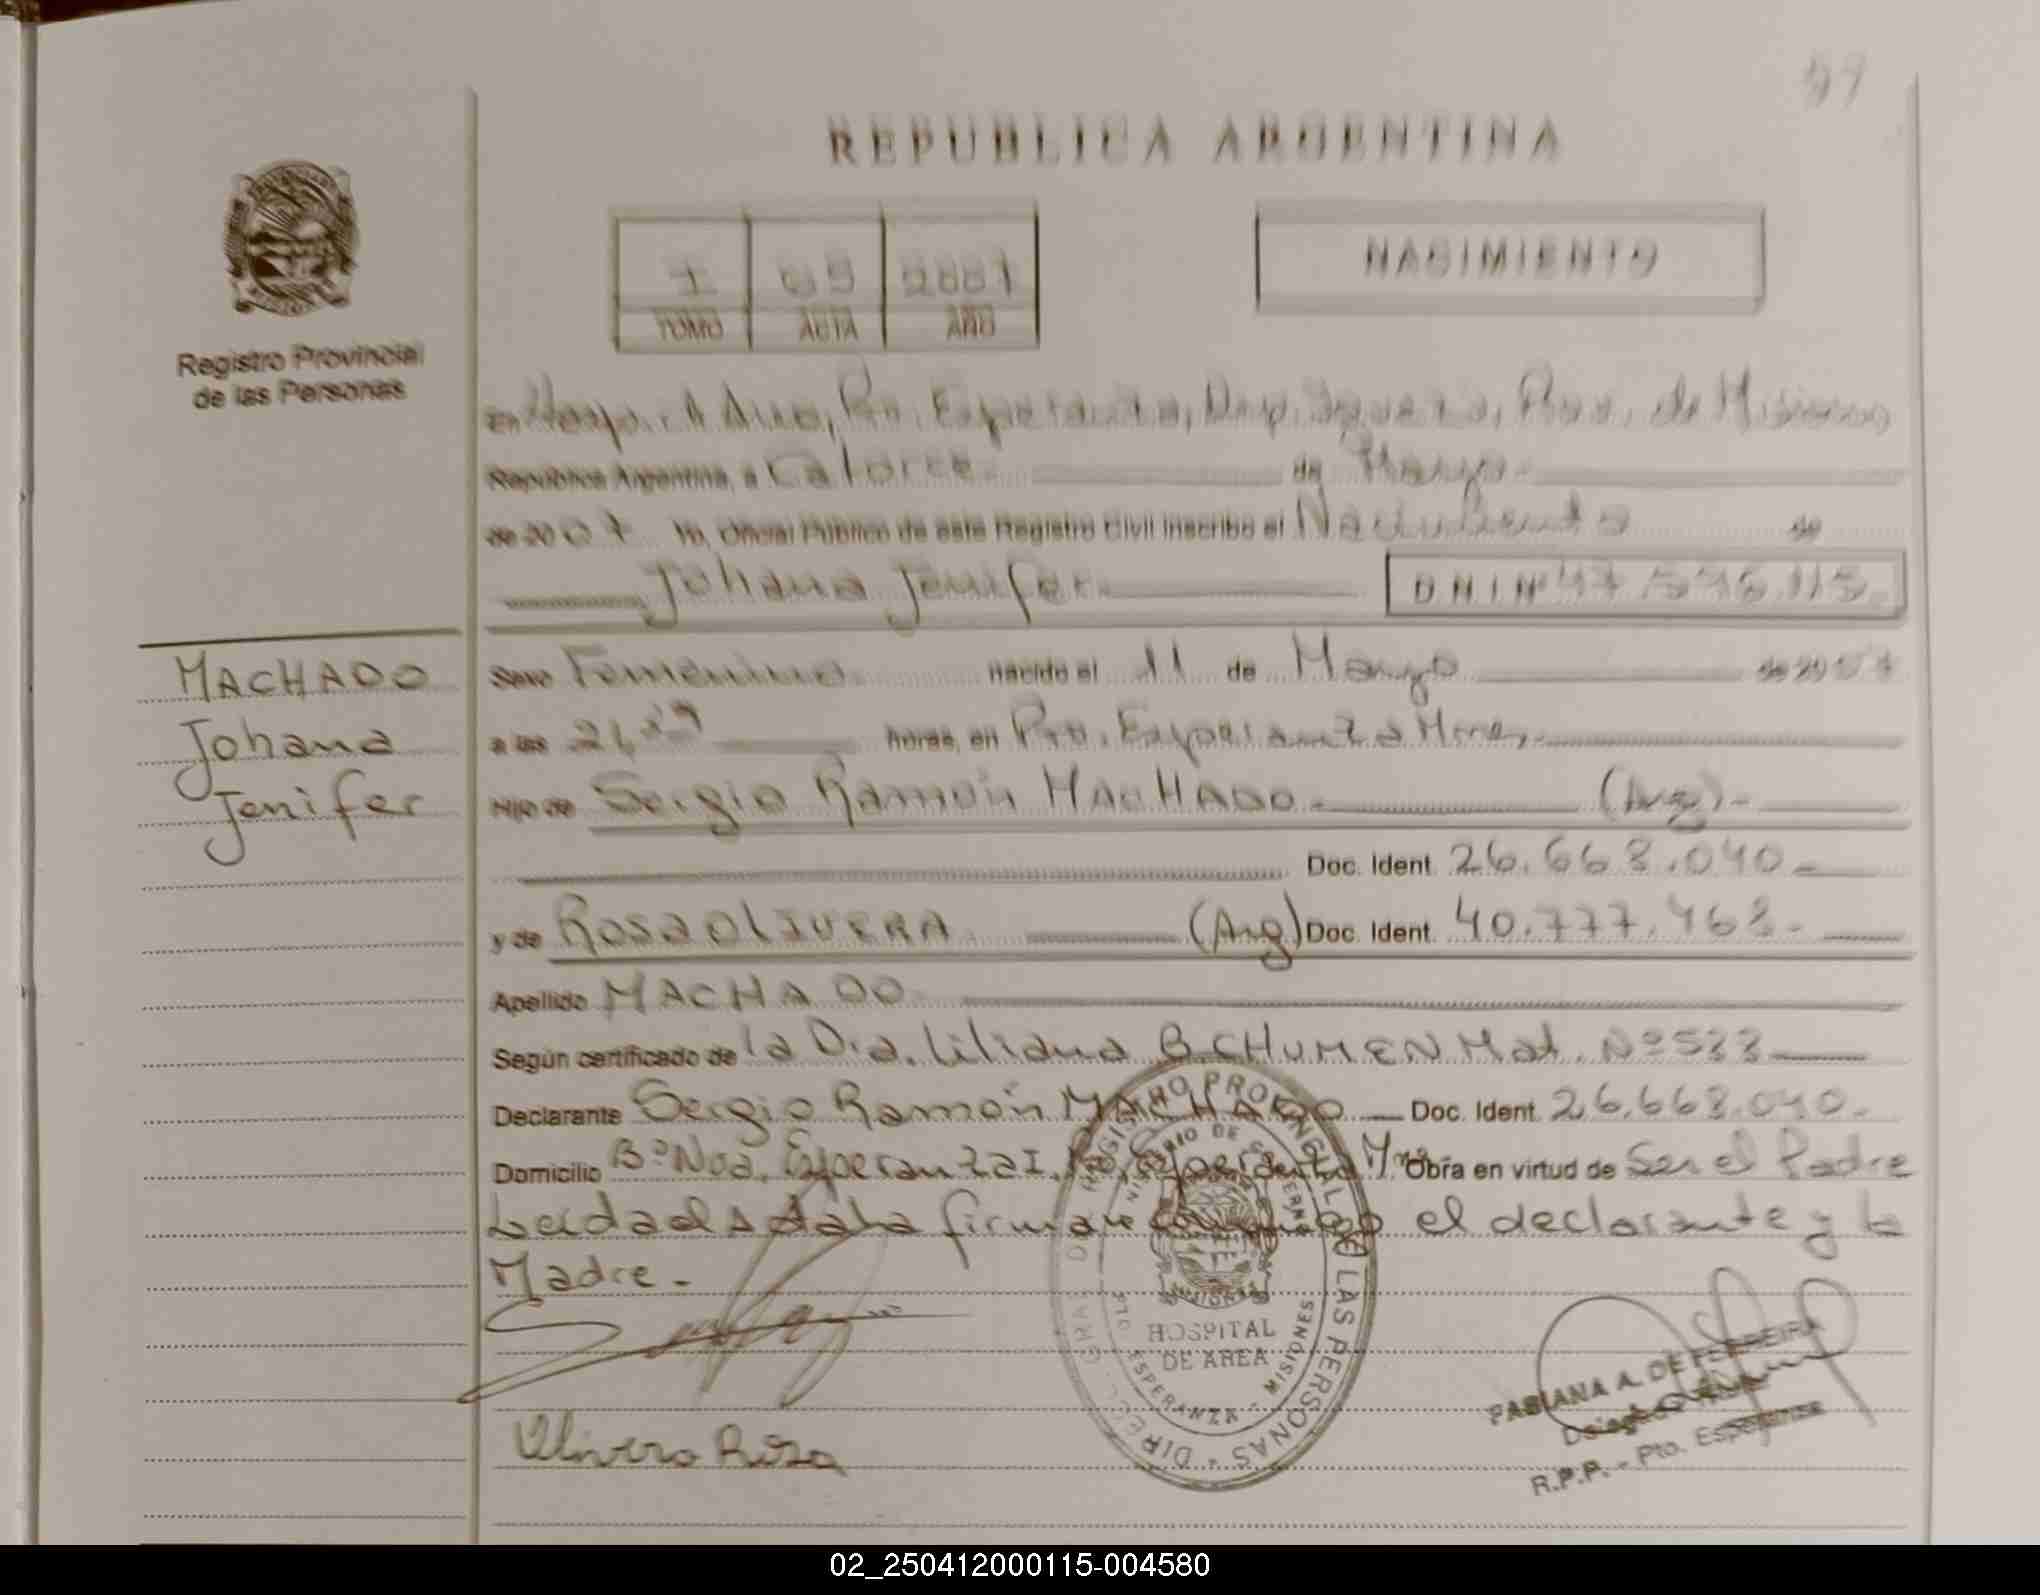 REPUBLICA ARGENTINA
NACIMIENTO
TOMO ACTA AÑO
Registro Provincial
de las Personas
República Argentina, a Catorce de Mayo
de 2007 Yo, Oficial Público de este Registro Civil inscribo el de
Johana Jenifer D N I Nº
MACHADO
Johana
Jenifer
Sexo Femenino nacido el 11 de Mayo de 2007
a las 21, horas, en Pto. Esperanza Mnes.
Hijo de Sergio Ramón MACHADO (Arg)
Doc. Ident. 26.668.040
y de Rosa OLIVERA (Arg) Doc. Ident. 40.777.468
Apellido MACHADO
Según certificado de la Dra. Liliana B. CHUMEN Mat. Nº 533
Declarante Sergio Ramón MACHADO Doc. Ident. 26.668.040
Domicilio Bº Nva. Esperanza I, Pto. Esperanza Mnes. Obra en virtud de Ser el Padre
Leida el Acta la firman conmigo el declarante y la
Madre.
REGISTRO PROVINCIAL DE LAS PERSONAS
MINISTERIO DE GOBIERNO
MISIONES
HOSPITAL
DE AREA
PTO. ESPERANZA - MISIONES
Olivera Rosa
FABIANA A. DE FERREIRA
R.P.P. - Pto. Esperanza
02_250412000115-004580